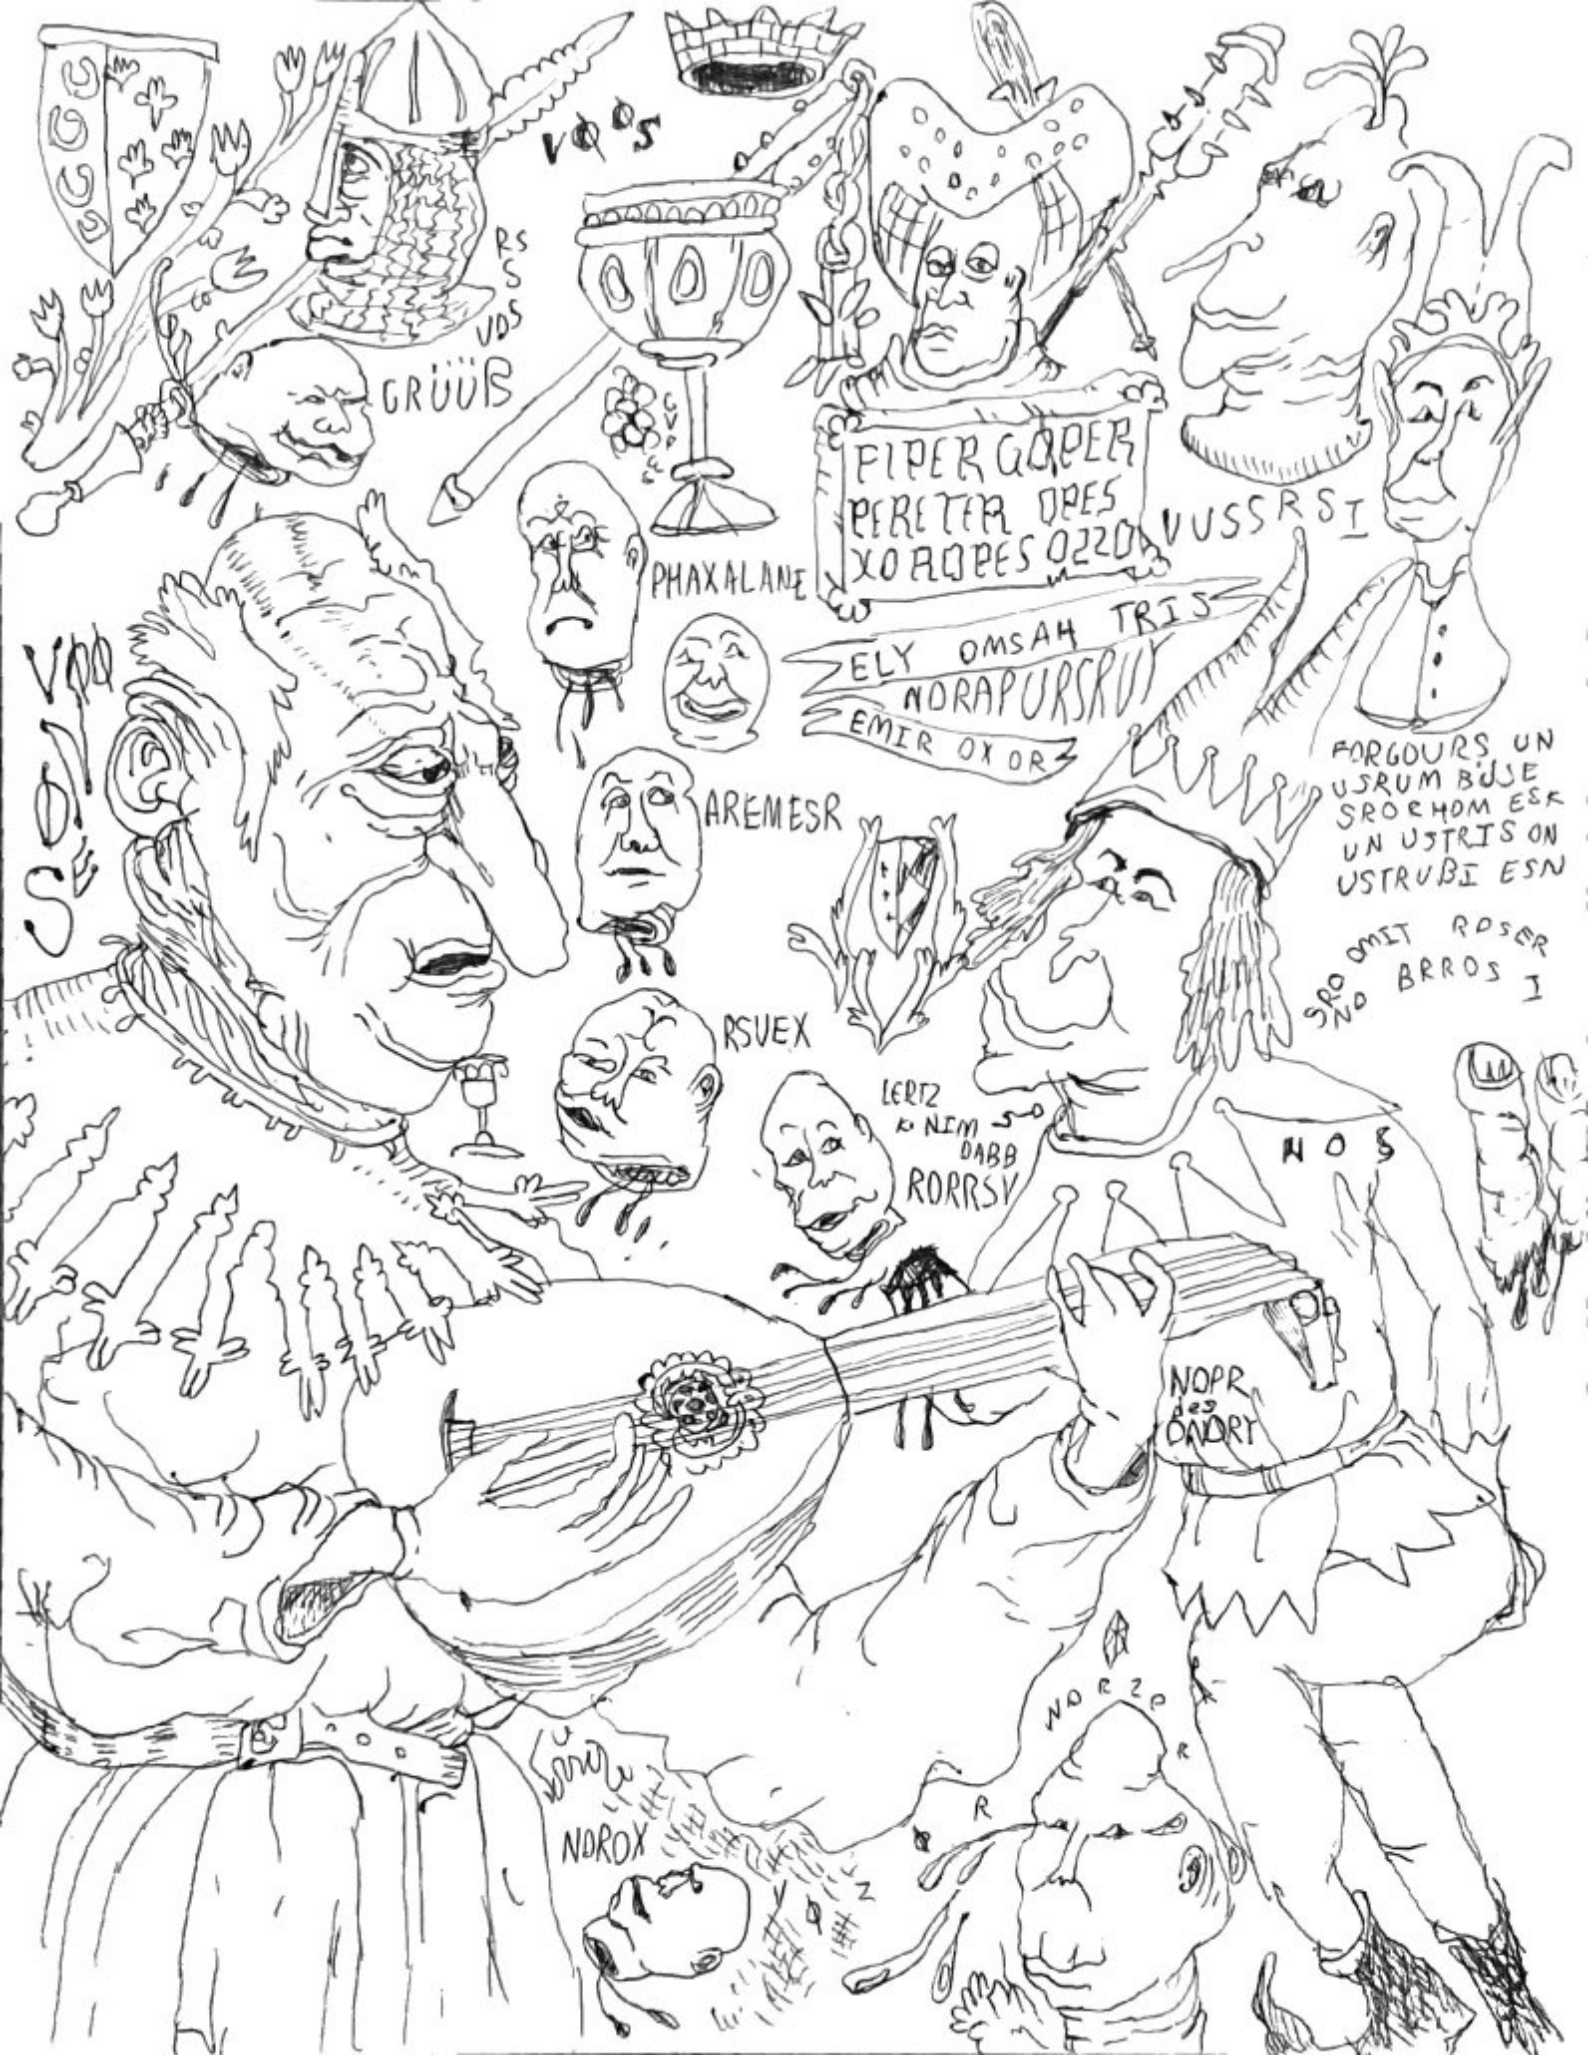 VØØS
RS
S
VDS
GRÜÜB
FIPER GOPER
PERETER OPES
XOROPES OZZO
VUSSRSI
PHAXALANE
ELY OMSAH TRIS
NORAPURSRUY
EMIR OX OR
AREMESR
FORGOURS UN
USRUM BUSE
SROCHOM ESK
UN USTRIS ON
USTRUBI ESN
OMIT ROSER
SRO
NO BRROS I
RSUEX
LERTZ
K NIM
DABB
RORRSV
NOS
NOPR
des
ONORY
NORZO
R
R
NOROX